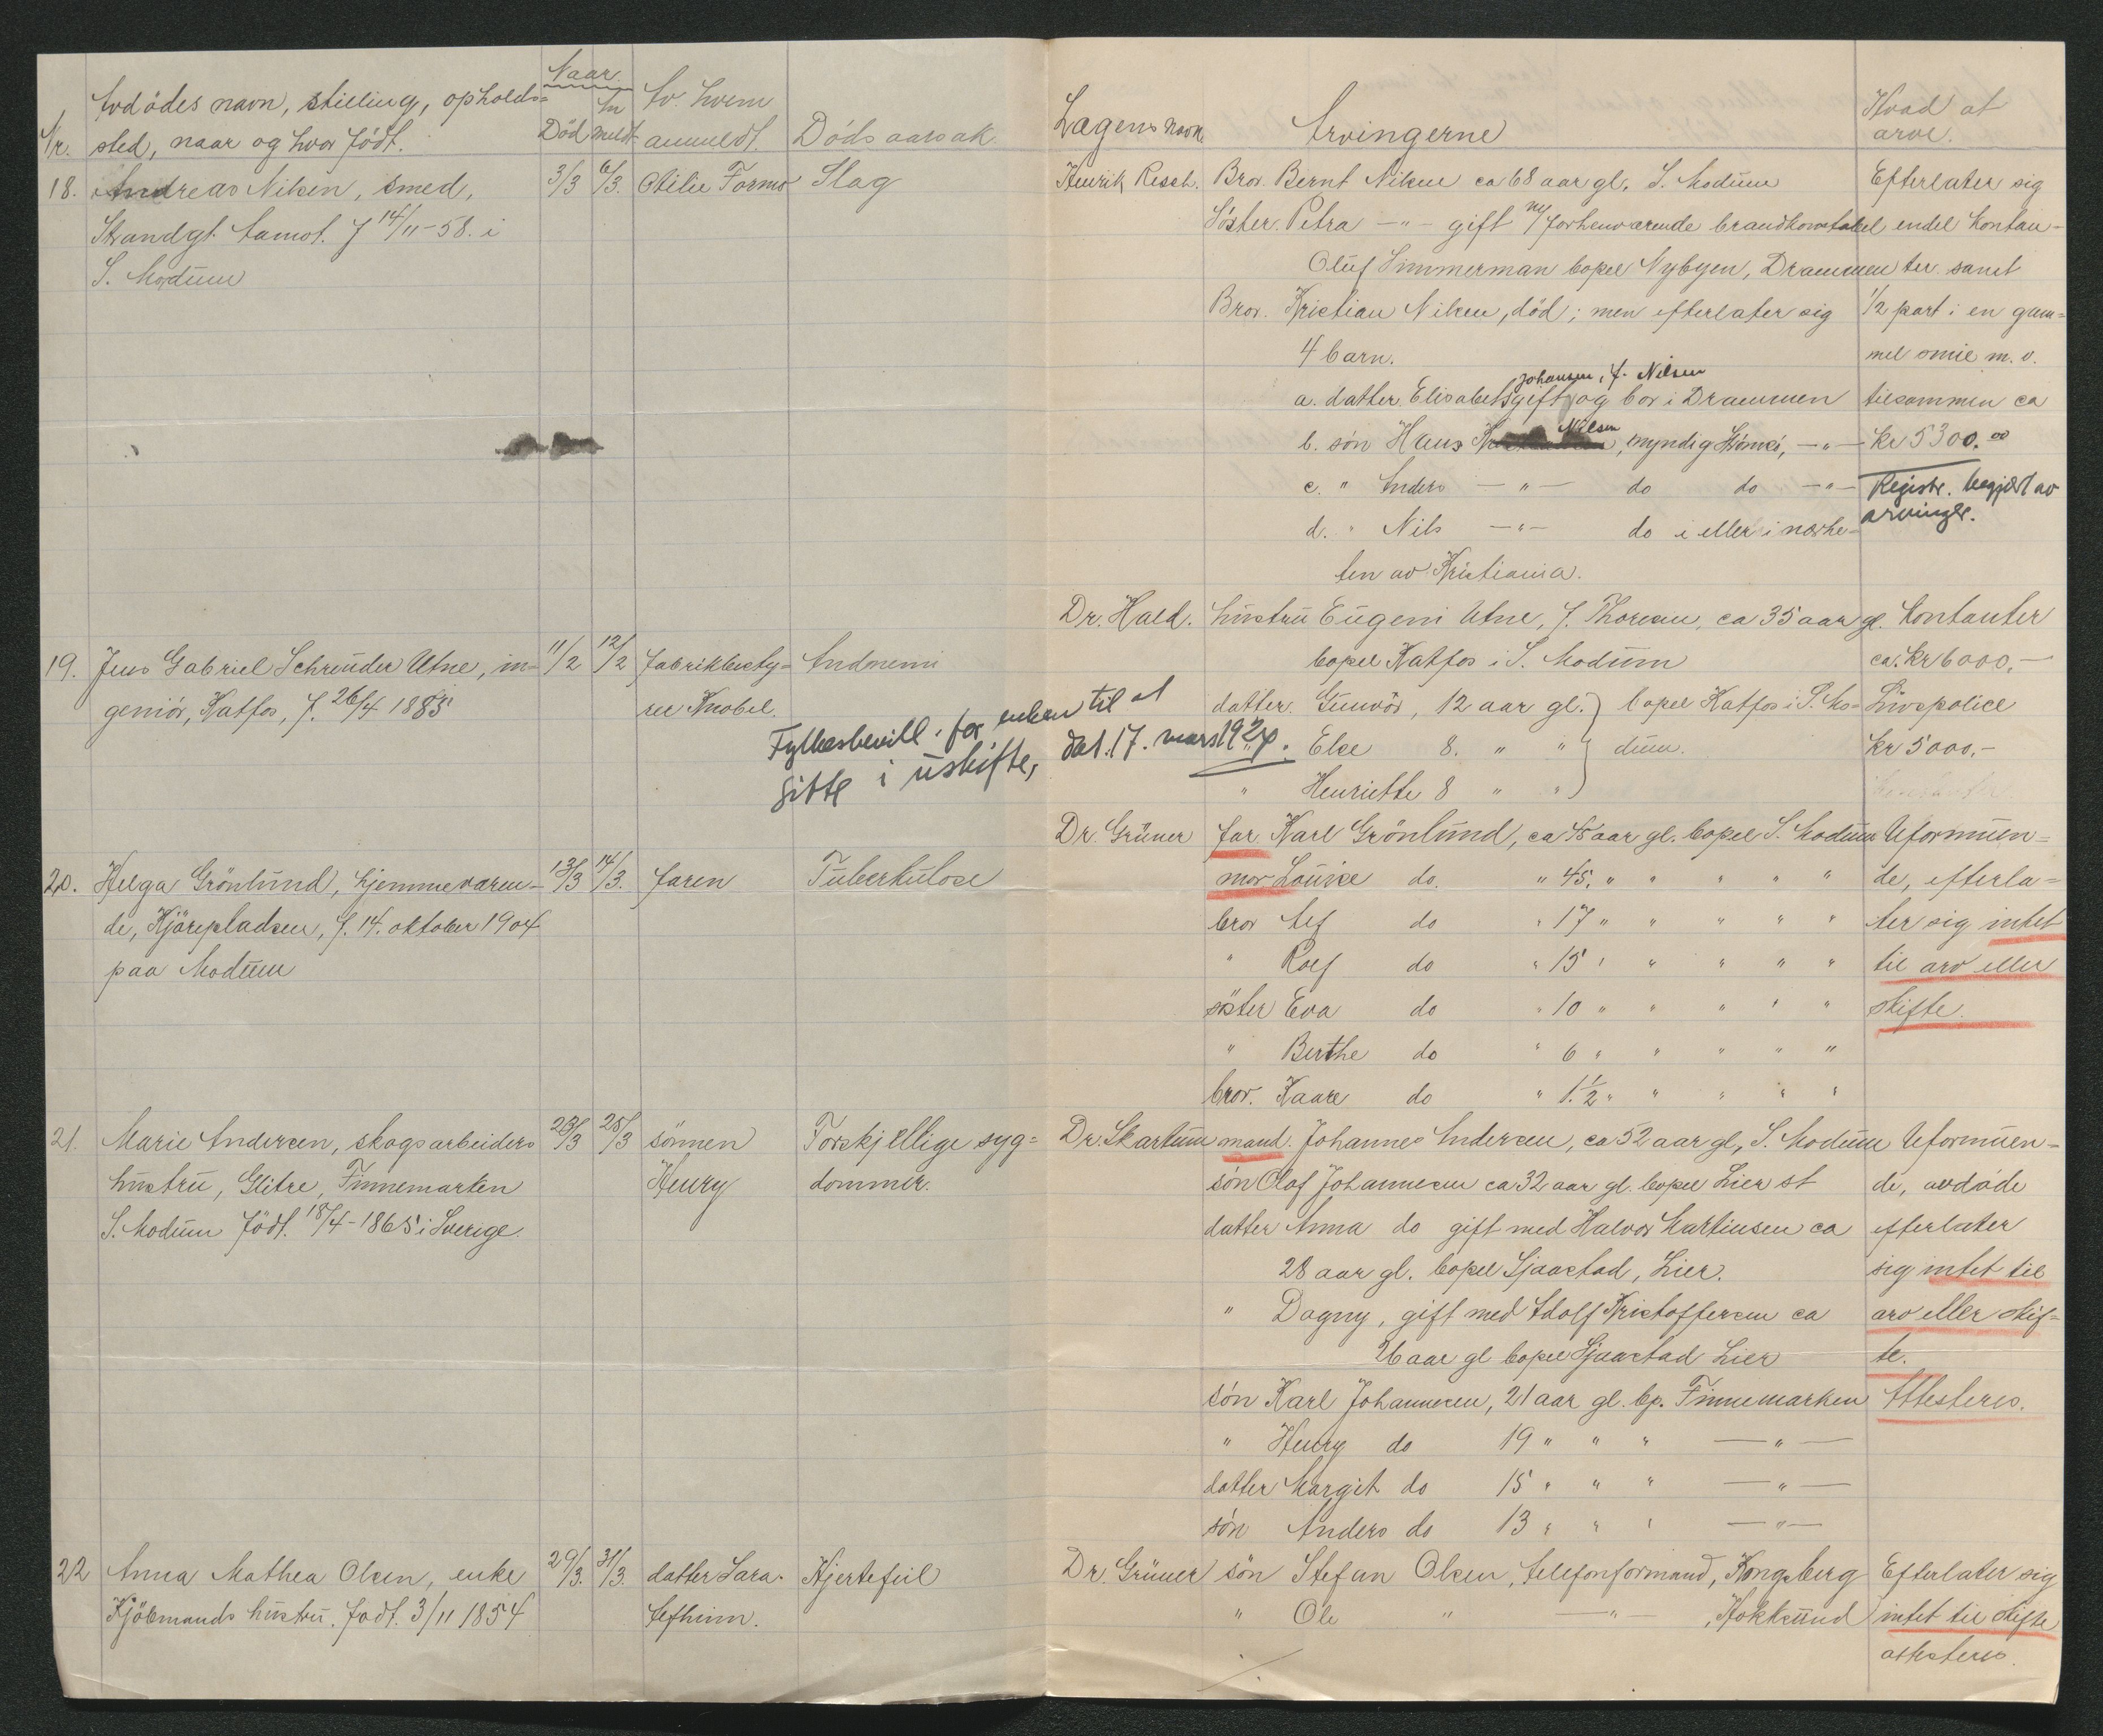 Avdödes navn, stilling, opholds=
sted, naar og hvor födt.
Nr.
Naar
Död
An
meldt
Av hvem
anmeldt.
Dödsaarsak
Lægens navn
Arvingerne
Hvad at
arve.
18. Andreas Nilsen, smed,
Strandgt. Aamot. f 14/11-58. i
S. Modum
3/3 6/3. Otilie Formo Slag
Henrik Resch. Bror. Bernt Nilsen ca 68 aar gl, S. Modum
Söster. Petra —"— gift m/ forhenværende brandkonstabel
Oluf Simmerman bopel Nybyen, Drammen
Bror. Kristian Nilsen, död; men efterlater sig
4 barn.
Johansen, f. Nilsen
a. datter Elisabeth gift og bor i Drammen
b. sön Hans Nilsen, myndig Strömsö, —"—
c. " Anders —"— do do —"—
d. " Nils —"— do i eller i nærhe-
ten av Kristiania.
Efterlater sig
endel kontan-
ter samt
1/2 part i en gam=
mel smie m. v.
tilsammen ca
kr 5300.00
Registr. begjært av
arvinger.
19. Jens Gabriel Schreuder Utne, in-
geniör, Katfos, f. 26/4 1883
11/2 12/2 fabrikbesty=
rer Knobel.
Andnemi
Fylkesbevill. for enken til at
sitte i uskifte, dat. 17. mars 1924.
Dr. Hald. hustru Eugeni Utne, f. Thoresen, ca 35 aar gl.
bopel Katfos i S. Modum
datter. Gunvör, 12 aar gl. } bopel Katfos i S. Mo-
" Else 8. " " } dum.
" Henriette 8 " " }
Kontanter
ca. kr 6000.—
Livspolice
kr 5000.—
20. Helga Grönlund, hjemmeværen-
de, Kjörepladsen, f. 14. oktober 1904
paa Modum
13/3 14/3. faren Tuberkulose
Dr. Grüner far Karl Grönlund, ca 45 aar gl. bopel S. Modum
mor Louise do. " 45. " " " " "
bror Alf do " 17 " " " " "
" Rolf do " 15 " " " " "
söster Eva do " 10 " " " " "
" Berthe do " 6 " " " " "
bror. Kaare do " 1.1/2 " " " " "
Uformuen=
de, efterla=
ter sig intet
til arv eller
skifte.
21. Marie Andersen, skogsarbeiders
hustru, Glitre, Finnemarken
S. Modum Födt. 18/4-1865 i Sverige.
23/3 25/3 sönnen
Henry
Forskjellige syg=
dommer.
Dr. Skartum mand. Johannes Andersen, ca 52 aar gl, S. Modum
sön Olaf Johannesen ca 32 aar gl. bopel Lier st
datter Anna do gift med Halvor Martinsen ca
28 aar gl. bopel Sjaastad, Lier.
" Dagny, gift med Adolf Kristoffersen ca
26 aar gl bopel Sjaastad Lier
sön Karl Johannesen, 21 aar gl. bp. Finnemarken
" Henry do 19 " " " —"—
datter Margit do 15 " " " —"—
sön Anders do 13 " " " —"—
Uformuen=
de, avdöde
efterlater
sig intet til
arv eller skif=
te.
Attesteres.
22 Anna Mathea Olsen, enke
Kjöbmands hustru. födt. 3/11 1854
29/3. 31/3. datter Sara
Hjertefeil
Dr. Grüner sön Stefan Olsen, telefonformand, Kongsberg
" Ole " —"— , Hokksund
Efterlater sig
intet til skifte
attesteres.
./.